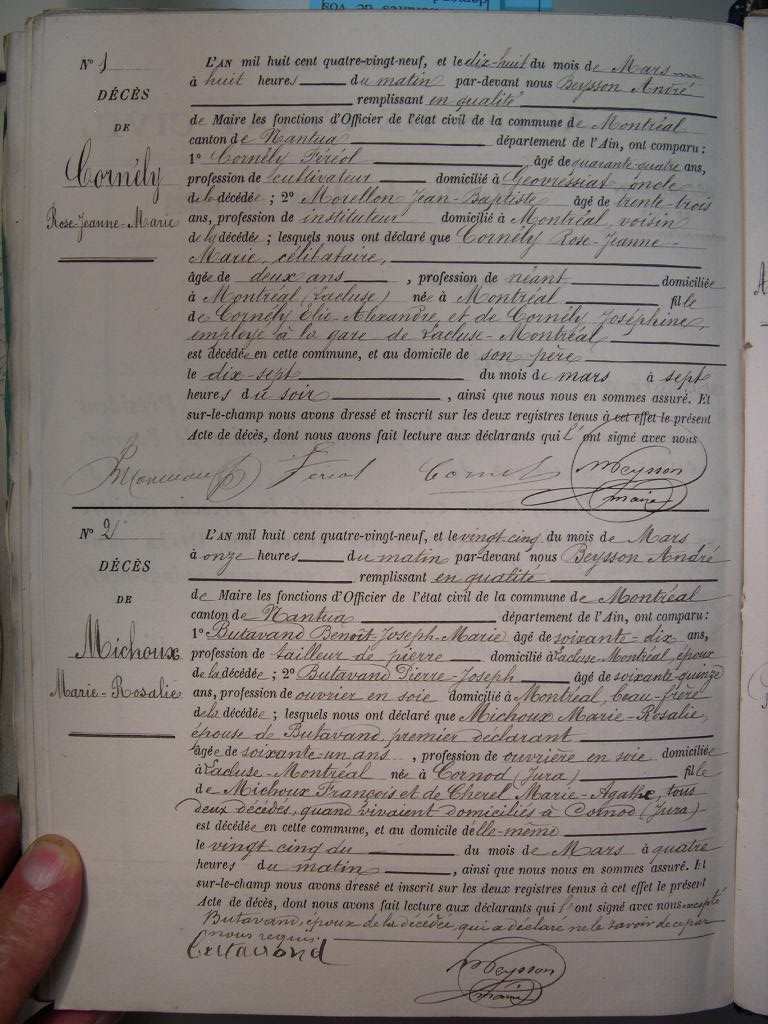 N° 1
DÉCÈS
DE
Cornély
Rose-Jeanne-Marie
L'AN mil huit cent quatre-vingt-neuf, et le dix-huit du mois de Mars
à huit heures du matin par-devant nous Beysson André
remplissant en qualité
de Maire les fonctions d'Officier de l'état civil de la commune de Montréal
canton de Nantua département de l'Ain, ont comparu :
1° Cornély Féréol âgé de quarante-quatre ans,
profession de cultivateur domicilié à Géovressiat, oncle
de la décédée ; 2° Morellon Jean-Baptiste âgé de trente-trois
ans, profession de instituteur domicilié à Montréal, voisin
de la décédée ; lesquels nous ont déclaré que Cornély Rose-Jeanne-
Marie, célibataire,
âgée de deux ans , profession de néant domiciliée
à Montréal (Lacluse) née à Montréal fille
de Cornély Elie-Alexandre, et de Cornély Joséphine,
employé à la gare de Lacluse-Montréal
est décédée en cette commune, et au domicile de son père
le dix-sept du mois de mars à sept
heures du soir , ainsi que nous nous en sommes assuré. Et
sur-le-champ nous avons dressé et inscrit sur les deux registres tenus à cet effet le présent
Acte de décès, dont nous avons fait lecture aux déclarants qui l'ont signé avec nous
Féréol
Beysson
maire
N° 2
DÉCÈS
DE
Michoux
Marie-Rosalie
L'AN mil huit cent quatre-vingt-neuf, et le vingt-cinq du mois de Mars
à onze heures du matin par-devant nous Beysson André
remplissant en qualité
de Maire les fonctions d'Officier de l'état civil de la commune de Montréal
canton de Nantua département de l'Ain, ont comparu :
1° Butavand Benoit Joseph-Marie âgé de soixante-dix ans,
profession de tailleur de pierre domicilié à Lacluse Montréal, époux
de la décédée ; 2° Butavand Pierre-Joseph âgé de soixante quinze
ans, profession de ouvrier en soie domicilié à Montréal, beau-frère
de la décédée ; lesquels nous ont déclaré que Michoux Marie-Rosalie,
épouse de Butavand premier déclarant
âgée de soixante-un ans , profession de ouvrière en soie domiciliée
à Lacluse-Montréal née à Cornod (Jura) fille
de Michoux François et de Cherel Marie-Agathe, tous
deux décédés, quand vivaient domiciliés à Cornod (Jura)
est décédée en cette commune, et au domicile d'elle-même
le vingt cinq du du mois de Mars à quatre
heures du matin , ainsi que nous nous en sommes assuré. Et
sur-le-champ nous avons dressé et inscrit sur les deux registres tenus à cet effet le présent
Acte de décès, dont nous avons fait lecture aux déclarants qui l'ont signé avec nous excepté
Butavand, époux de la décédée, qui a déclaré ne le savoir de ce par
nous requis.
Butavand
Beysson
maire